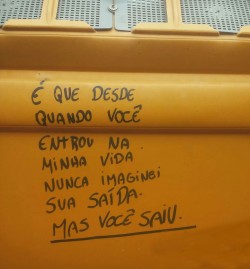 É QUE DESDE
QUANDO VOCÊ
ENTROU NA
MINHA VIDA
NUNCA IMAGINEI
SUA SAÍDA.
MAS VOCÊ SAIU.